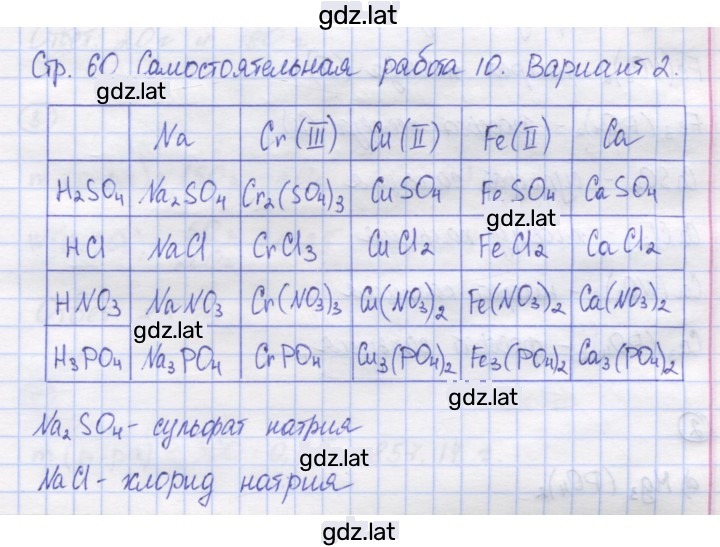 gdz.lat
Стр. 60 Самостоятельная работа 10. Вариант 2.
gdz.lat
Na Cr (III) Cu (II) Fe (II) Ca
H₂SO₄ Na₂SO₄ Cr₂(SO₄)₃ CuSO₄ FeSO₄ CaSO₄
gdz.lat
HCl NaCl CrCl₃ CuCl₂ FeCl₂ CaCl₂
HNO₃ NaNO₃ Cr(NO₃)₃ Cu(NO₃)₂ Fe(NO₃)₂ Ca(NO₃)₂
gdz.lat
H₃PO₄ Na₃PO₄ CrPO₄ Cu₃(PO₄)₂ Fe₃(PO₄)₂ Ca₃(PO₄)₂
gdz.lat
Na₂SO₄ - сульфат натрия
gdz.lat
NaCl - хлорид натрия
gdz.lat